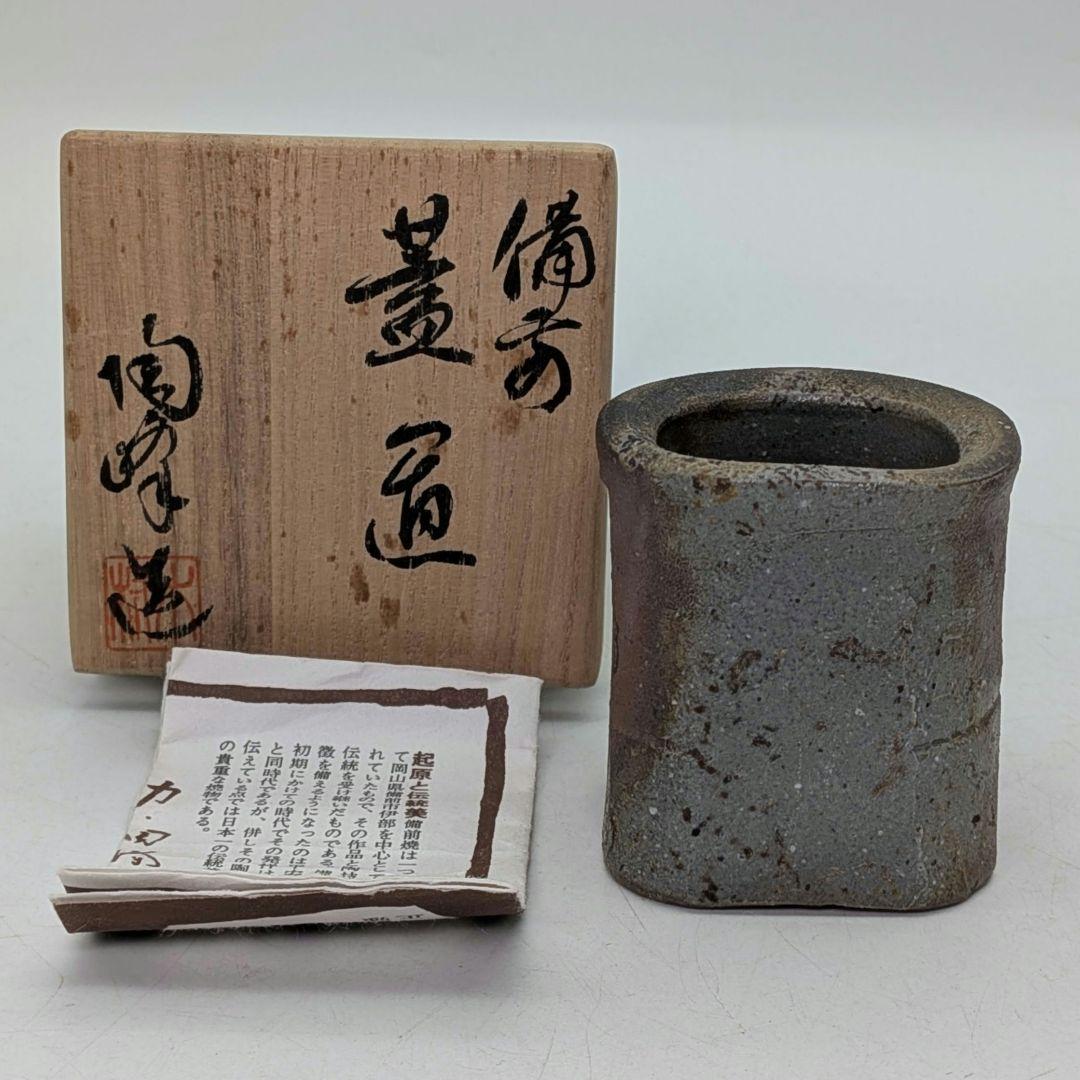 備前
蓋置
陶峰造
起原と伝統美
備前焼は一つ
て岡山県備前市伊部を中心と
れていたもので、その作品と陶技
伝統を受け継いだものである
徴を備えるようになったのは
初期にかけての時代でその発祥は
と同時代であるが、併しその陶
伝えている点では日本一の伝統
の貴重な焼物である。